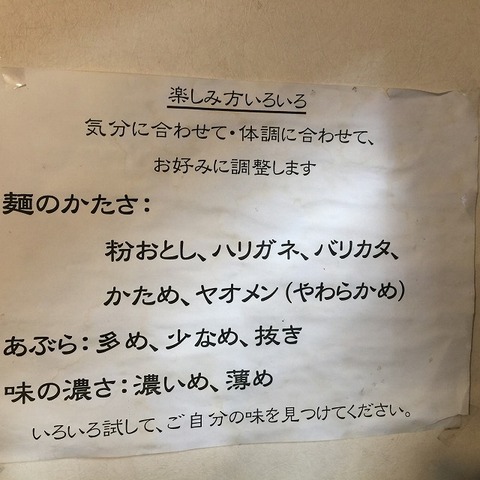 楽しみ方いろいろ
気分に合わせて・体調に合わせて、
お好みに調整します
麺のかたさ：
粉おとし、ハリガネ、バリカタ、
かため、ヤオメン（やわらかめ）
あぶら：多め、少なめ、抜き
味の濃さ：濃いめ、薄め
いろいろ試して、ご自分の味を見つけてください。